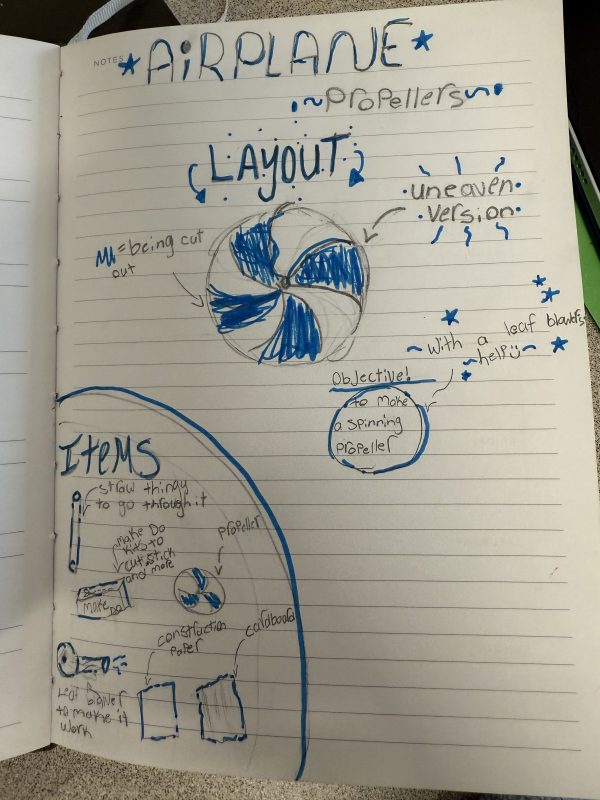 NOTES
AiRPLANE
~Propellers~
LAYOUT
uneaven
version
= being cut
out
~ with a leaf blawers
~help~
Objective!
to make
a spinning
propeller
Items
straw thingy
to go through it
Make Do
kits to
cut, stick
and more
propeller
Make Do
construction
paper
cardboard
Leaf blower
to make it
work